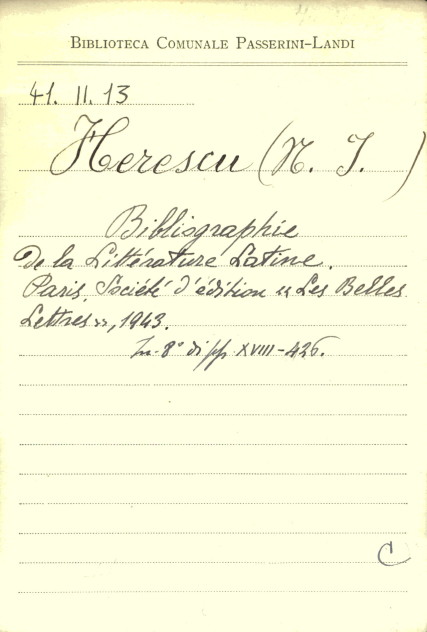 BIBLIOTECA COMUNALE PASSERINI-LANDI
41. II. 13
Herescu (N. I.)
Bibliographie
de la Littérature Latine.
Paris, Société d'édition « Les Belles
Lettres », 1943.
In-8° di pp. XVIII-426.
C